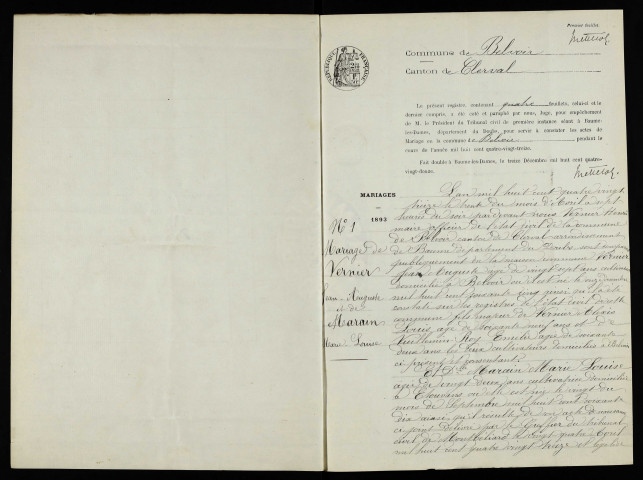 Premier feuillet
Commune de Belvoir
Canton de Clerval
RÉPUBLIQUE FRANÇAISE
Le présent registre, contenant quatre feuillets, celui-ci et le
dernier compris, a été coté et paraphé par nous, Juge, pour empêchement
de M. le Président du Tribunal civil de première instance séant à Baume-
les-Dames, département du Doubs, pour servir à constater les actes de
Mariage de la commune de Belvoir pendant le
cours de l'année mil huit cent quatre-vingt-treize.
Fait double à Baume-les-Dames, le treize Décembre mil huit cent quatre-
vingt-douze.
MARIAGES
1893
N° 1
Mariage de
Vernier
Jean Auguste
et de
Marain
Marie Louise
L'an mil huit cent quatre vingt
treize le trente du mois d'avril à sept
heures du soir par devant nous Vernier
maire officier de l'état civil de la commune
de Belvoir canton de Clerval arrondissement
de Baume département du Doubs sont comparus
publiquement en la maison commune Vernier
Jean Auguste âgé de vingt sept ans cultivateur
domicilié à Belvoir où il est né le
mil huit cent soixante cinq ainsi
constaté sur les registres de l'état civil de cette
commune fils majeur de Vernier
Louis, âgé de soixante neuf ans et de
Roy âgée de soixante
deux ans tous deux cultivateurs domiciliés à Belvoir
ci présents et consentants.
Et Dlle Marain Marie Louise
âgée de vingt deux ans cultivatrice domiciliée
à où elle est née le vingt du
mois de Septembre mil huit cent soixante
dix ainsi qu'il résulte de son acte de naissance
ci joint délivré par le Greffier du tribunal
civil de Montbéliard le vingt quatre Avril
mil huit cent quatre vingt treize et